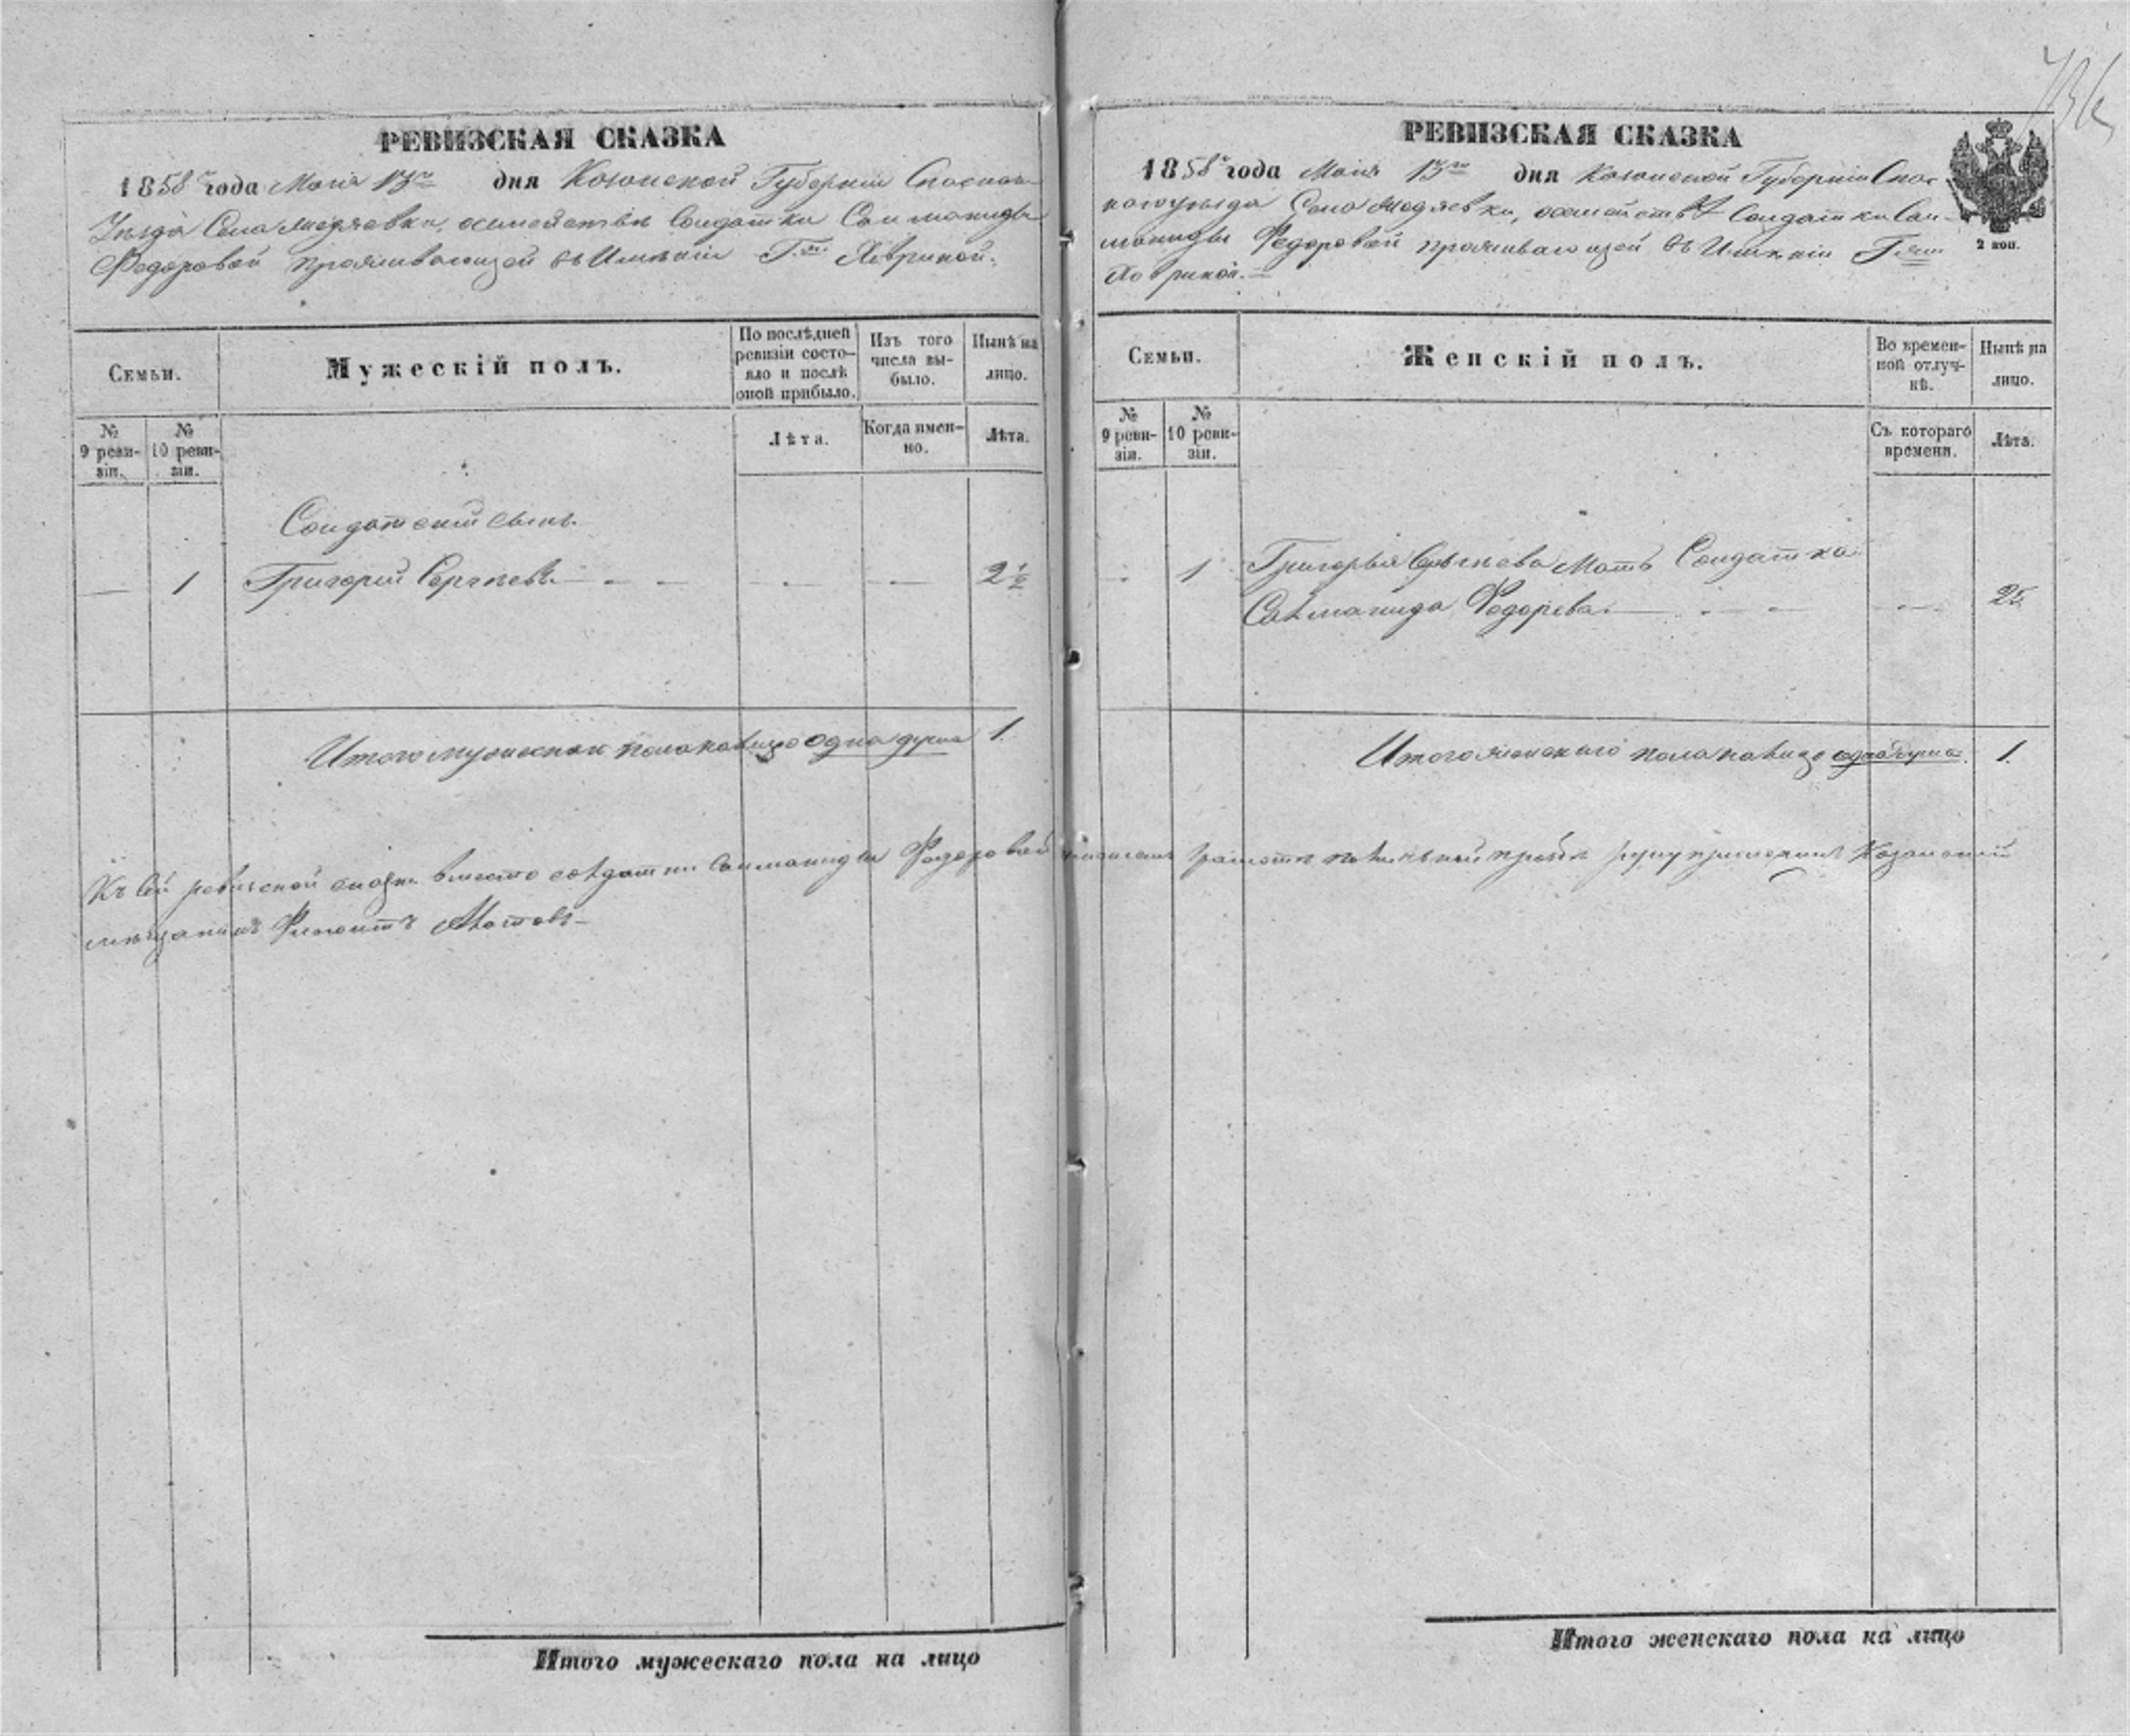 РЕВИЗСКАЯ СКАЗКА
1858 года Маія 13го дня Казанской Губерніи Спаскаго
Уѣзда Села Медяевки, о семействѣ Солдатки Соломаниды
Федоровой проживающей въ Имѣніи Г.жи Ховриной.
Семьи.
Мужескій полъ.
По послѣдней ревизіи состо-
яло и послѣ оной прибыло.
Изъ того числа вы-
было.
Нынѣ на лицо.
№ 9 реви-
зіи.
№ 10 реви-
зіи.
Лѣта.
Когда имен-
но.
Лѣта.
Солдатский сынъ
— 1 Григорий Сергѣевъ — — — — 2½
Итого мужеска пола налицо одна душа 1.
Къ сей ревизской сказке вместо солдатки Соломаниды Федоровой неумѣющей грамоты по личной прозьбѣ руку приложилъ Казанский
мѣщанинъ
РЕВИЗСКАЯ СКАЗКА
1858 года Маія 13го дня Казанской Губерніи Спас-
каго уѣзда Села Медяевки, о семействѣ Солдатки Соло-
маниды Федоровой проживающей въ Имѣніи Г.жи
Ховриной.
2 коп.
Семьи.
Женскій полъ.
Во времен-
ной отлуч-
кѣ.
Нынѣ на лицо.
№ 9 реви-
зіи.
№ 10 реви-
зіи.
Съ котораго времени.
Лѣта.
— 1 Григорья Сергѣева Мать Солдатка
Соломанида Федорова — — — 25
Итого женскаго пола налицо одна душа. 1.
Итого мужескаго пола на лицо
Итого женскаго пола на лицо